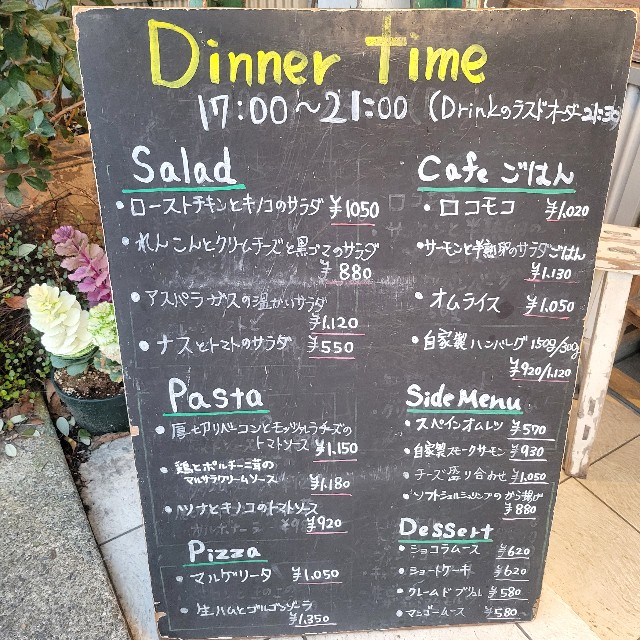 Dinner Time
17:00～21:00 (Drinkのラストオーダー21:30)
Salad
・ローストチキンとキノコのサラダ ¥1050
・れんこんとクリームチーズと黒ゴマのサラダ
¥880
・アスパラガスの温かいサラダ
¥1,120
・ナスとトマトのサラダ ¥550
Pasta
・厚切りベーコンとモッツァレラチーズの
トマトソース ¥1,150
・鶏とポルチーニ茸の
マルサラクリームソース ¥1,180
・ツナとキノコのトマトソース
¥920
Pizza
・マルゲリータ ¥1,050
・生ハムとゴルゴンゾーラ
¥1,350
Cafe ごはん
・ロコモコ ¥1,020
・サーモンと半熟卵のサラダごはん
¥1,130
・オムライス ¥1,050
・自家製ハンバーグ 150g/300g
¥920/1,120
Side Menu
・スペインオムレツ ¥570
・自家製スモークサーモン ¥930
・チーズ盛り合わせ ¥1,050
・ソフトシェルシュリンプのから揚げ
¥880
Dessert
・ショコラムース ¥620
・ショートケーキ ¥620
・クレームドブリュレ ¥580
・マンゴームース ¥580